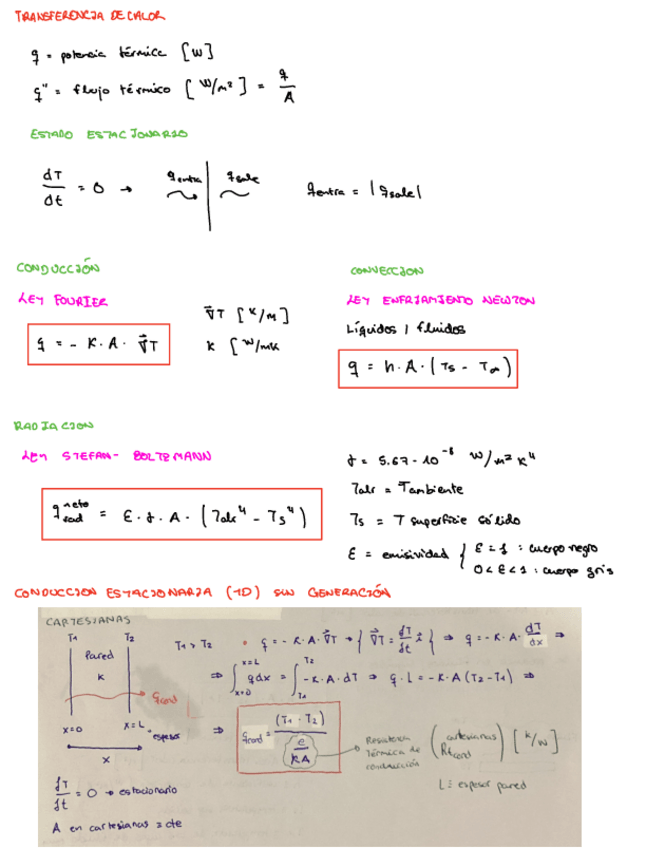 TRANSFERENCIA DE CALOR
q = potencia térmica [W]
q" = flujo térmico [W/m²] = q/A
ESTADO ESTACIONARIO
dT/dt = 0 → qentra qsale qentra = |qsale|
CONDUCCIÓN
LEY FOURIER
q = - K · A · ∇⃗T
∇⃗T [K/m]
K [W/mK
CONVECCION
LEY ENFRIAMIENTO NEWTON
Líquidos / fluidos
q = h · A · (Ts - T∞)
RADIACION
LEY STEFAN - BOLTZMANN
q neto rad = ε · σ · A · (Talr⁴ - Ts⁴)
σ = 5.67 · 10⁻⁸ W/m² K⁴
Talr = Tambiente
Ts = T superficie sólido
ε = emisividad { ε = 1 : cuerpo negro
0 < ε < 1 : cuerpo gris
CONDUCCION ESTACIONARIA (1D) SIN GENERACIÓN
CARTESIANAS
T1 T2
Pared
K
qcond
x=0 x=L → espesor
x
dT/dt = 0 → estacionario
A en cartesianas = cte
T1 > T2 • q = - K · A · ∇⃗T → { ∇⃗T = dT/dt i⃗ } ⇒ q = - K · A · dT/dx ⇒
⇒ ∫x=0 x=L q dx = ∫T1 T2 - K · A · dT ⇒ q · L = - K · A (T2 - T1) ⇒
⇒ qcond = (T1 - T2) / (e/KA)
Resistencia térmica de conducción (Rtcond cartesianas) [K/W]
L = espesor pared